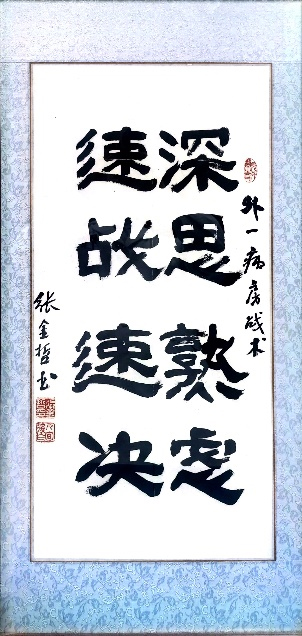 外一病房战术
深思熟虑
速战速决
张金哲书